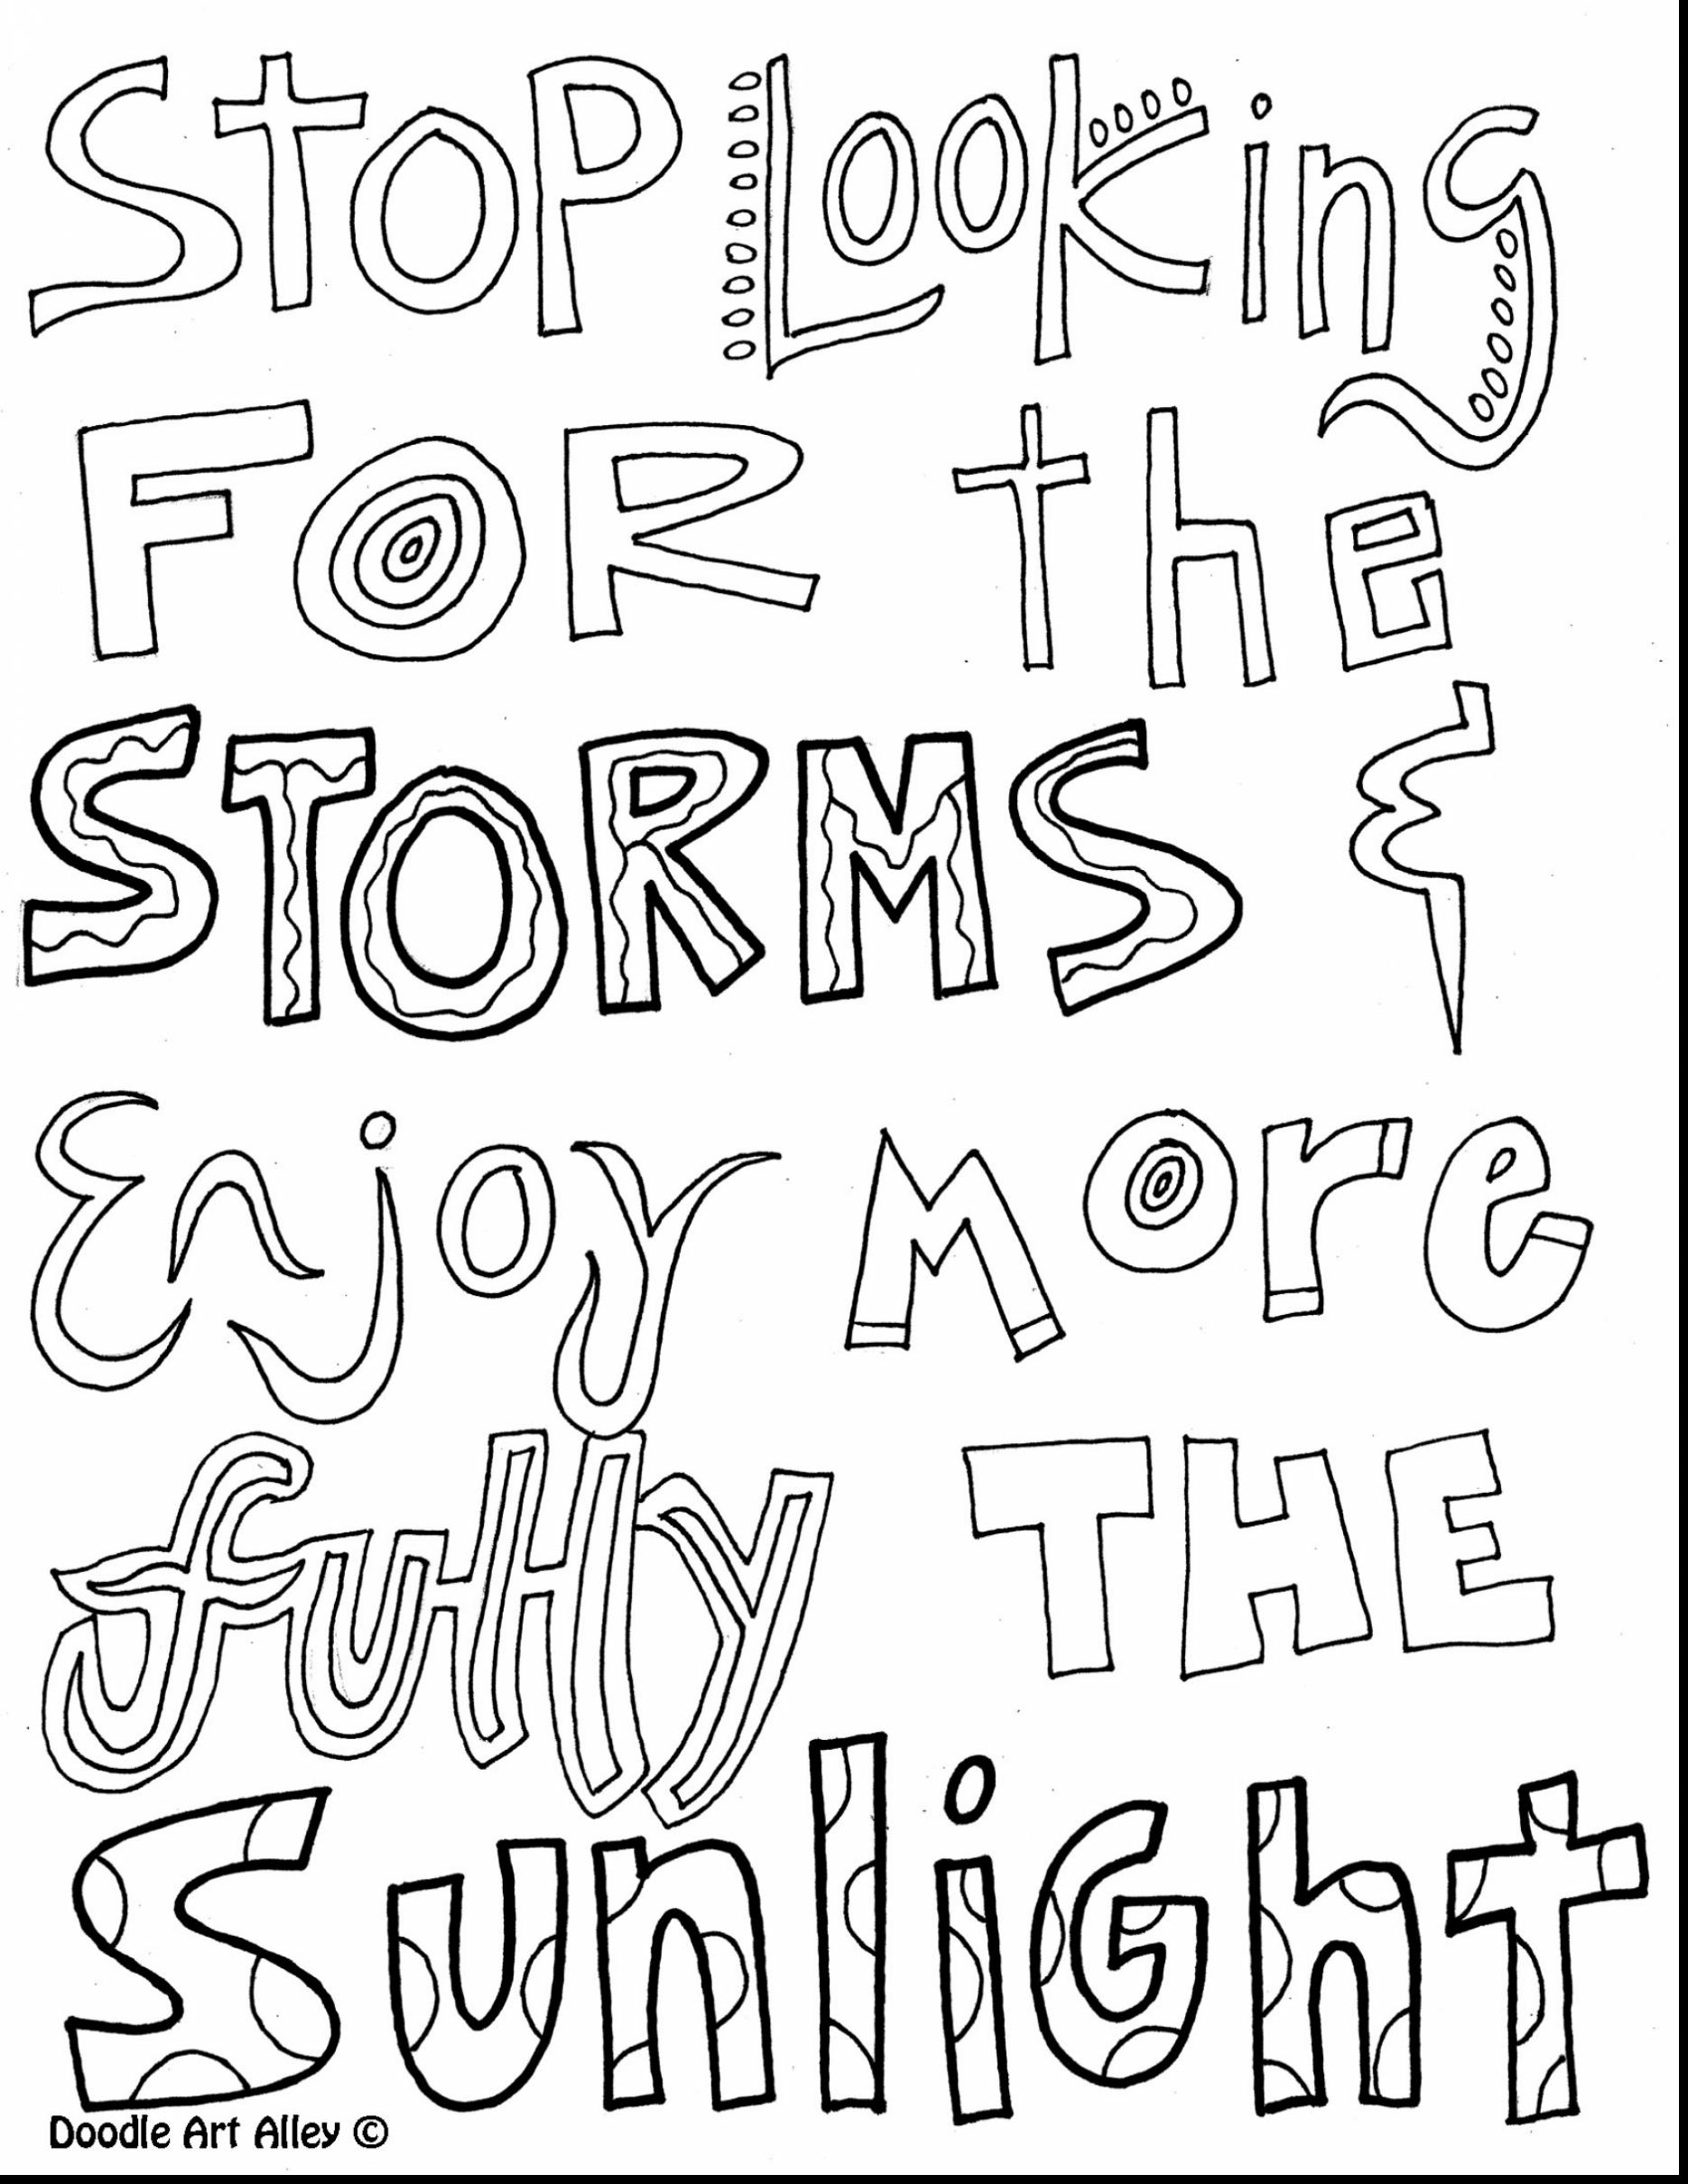 Stop Looking
FOR the
STORMS &
Enjoy more
fully THE
Sunlight
Doodle Art Alley ©